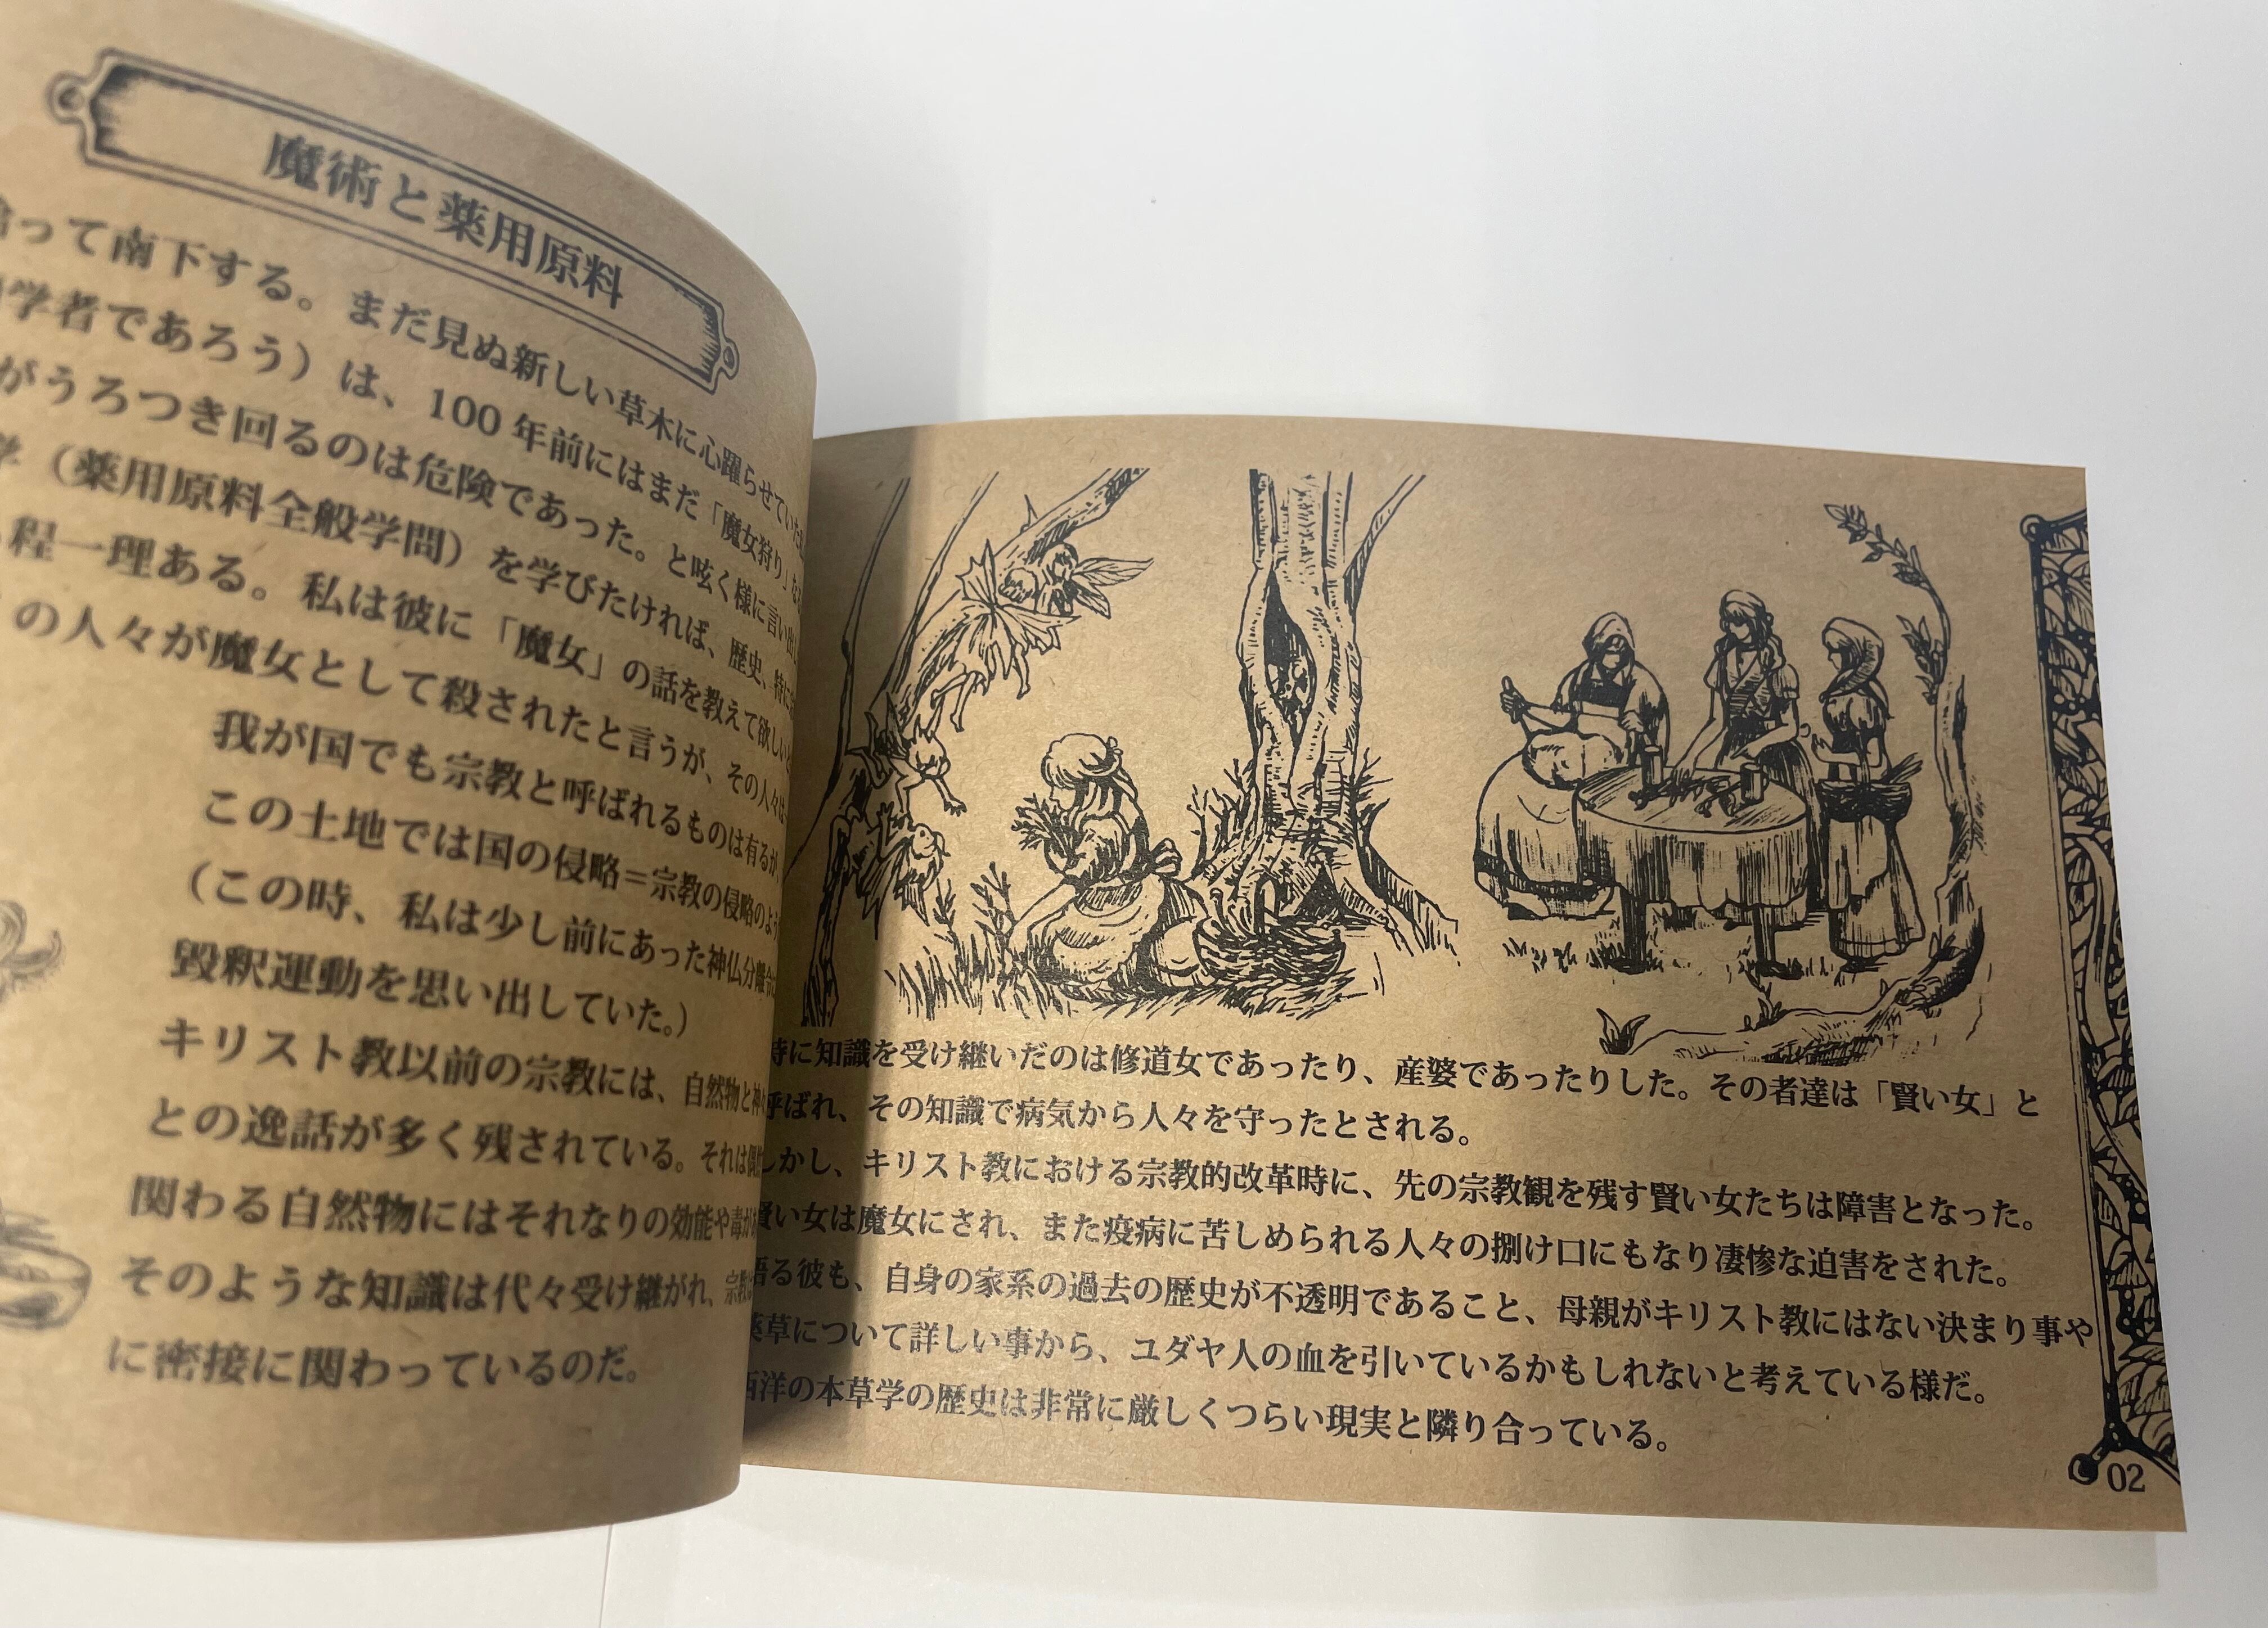 魔術と薬用原料
って南下する。まだ見ぬ新しい草木に心躍らせていた
学者であろう）は、100 年前にはまだ「魔女狩り」
がうろつき回るのは危険であった。と呟く様に言い出
（薬用原料全般学問）を学びたければ、歴史、特に
程一理ある。私は彼に「魔女」の話を教えて欲しい
の人々が魔女として殺されたと言うが、その人々は
我が国でも宗教と呼ばれるものは有るが
この土地では国の侵略＝宗教の侵略のよう
（この時、私は少し前にあった神仏分離令
毀釈運動を思い出していた。）
キリスト教以前の宗教には、自然物と神
との逸話が多く残されている。それは偶
関わる自然物にはそれなりの効能や毒が
そのような知識は代々受け継がれ、宗教
に密接に関わっているのだ。
時に知識を受け継いだのは修道女であったり、産婆であったりした。その者達は「賢い女」と
呼ばれ、その知識で病気から人々を守ったとされる。
しかし、キリスト教における宗教的改革時に、先の宗教観を残す賢い女たちは障害となった。
賢い女は魔女にされ、また疫病に苦しめられる人々の捌け口にもなり凄惨な迫害をされた。
語る彼も、自身の家系の過去の歴史が不透明であること、母親がキリスト教にはない決まり事や
薬草について詳しい事から、ユダヤ人の血を引いているかもしれないと考えている様だ。
西洋の本草学の歴史は非常に厳しくつらい現実と隣り合っている。
02